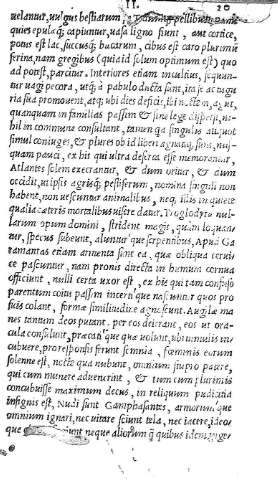 II. 20
uelantur, uulgus bestiarum, pecudumq; pellibus, namq́
quies epulaq́; capiuntur, uasa ligno fiunt, aut cortice,
potus est lac, succusq́; bacarum, cibus est caro plurimum
ferina, nam gregibus (quia id solum optimum est) quo
ad potest, parcitur. Interiores etiam incultius, sequun-
tur uagi pecora, utq́; à pabulo ducta sunt, ita se ac tugu
ria sua promouent, atq; ubi dies deficit, ibi noctem, agunt,
quanquam in familias passim & sine lege dispersi, ni-
hil in commune consultant, tamen quia singulis aliquot
simul coniuges, & plures ob id liberi agnatiq; sunt, nus-
quam pauci, ex his qui ultra deserta esse memorantur,
Atlantes solem execrantur, & dum oritur, & dum
occidit, ut ipsis agrisq́; pestiferum, nomina singuli non
habent, non uescuntur animalibus, neq; illis in quiete
qualia cæteris mortalibus uisere datur, Troglodytæ nul-
larum opum domini, strident magis, quàm loquun-
tur, specus subeunt, aluntur que serpentibus, Apud Ga
ramantas etiam armenta sunt ea, quæ obliqua cerui-
ce pascuntur, nam pronis directa in humum cornua
officiunt, nulli certa uxor est, ex his qui tam confuso
parentum coitu passim incerti que nascuntur quos pro
suis colant, formæ similitudine agnoscunt. Augilæ ma
nes tantum deos putant, per eos deierant, eos ut ora-
cula consulunt, precatiq́; quæ uolunt, ubi tumulis in-
cubuere, pro responsis ferunt somnia, fœminis eorum
solenne est, nocte qua nubunt, omnium stupro patere,
qui cum munere aduenerint, & tum cum plurimis
concubuisse maximum decus, in reliquum pudicitia
insignis est, Nudi sunt Gamphasantes, armorumq́ue
omnium ignari, nec uitare sciunt tela, nec iacere, ideoq
que neque aliorum q̃ quibus idem inger